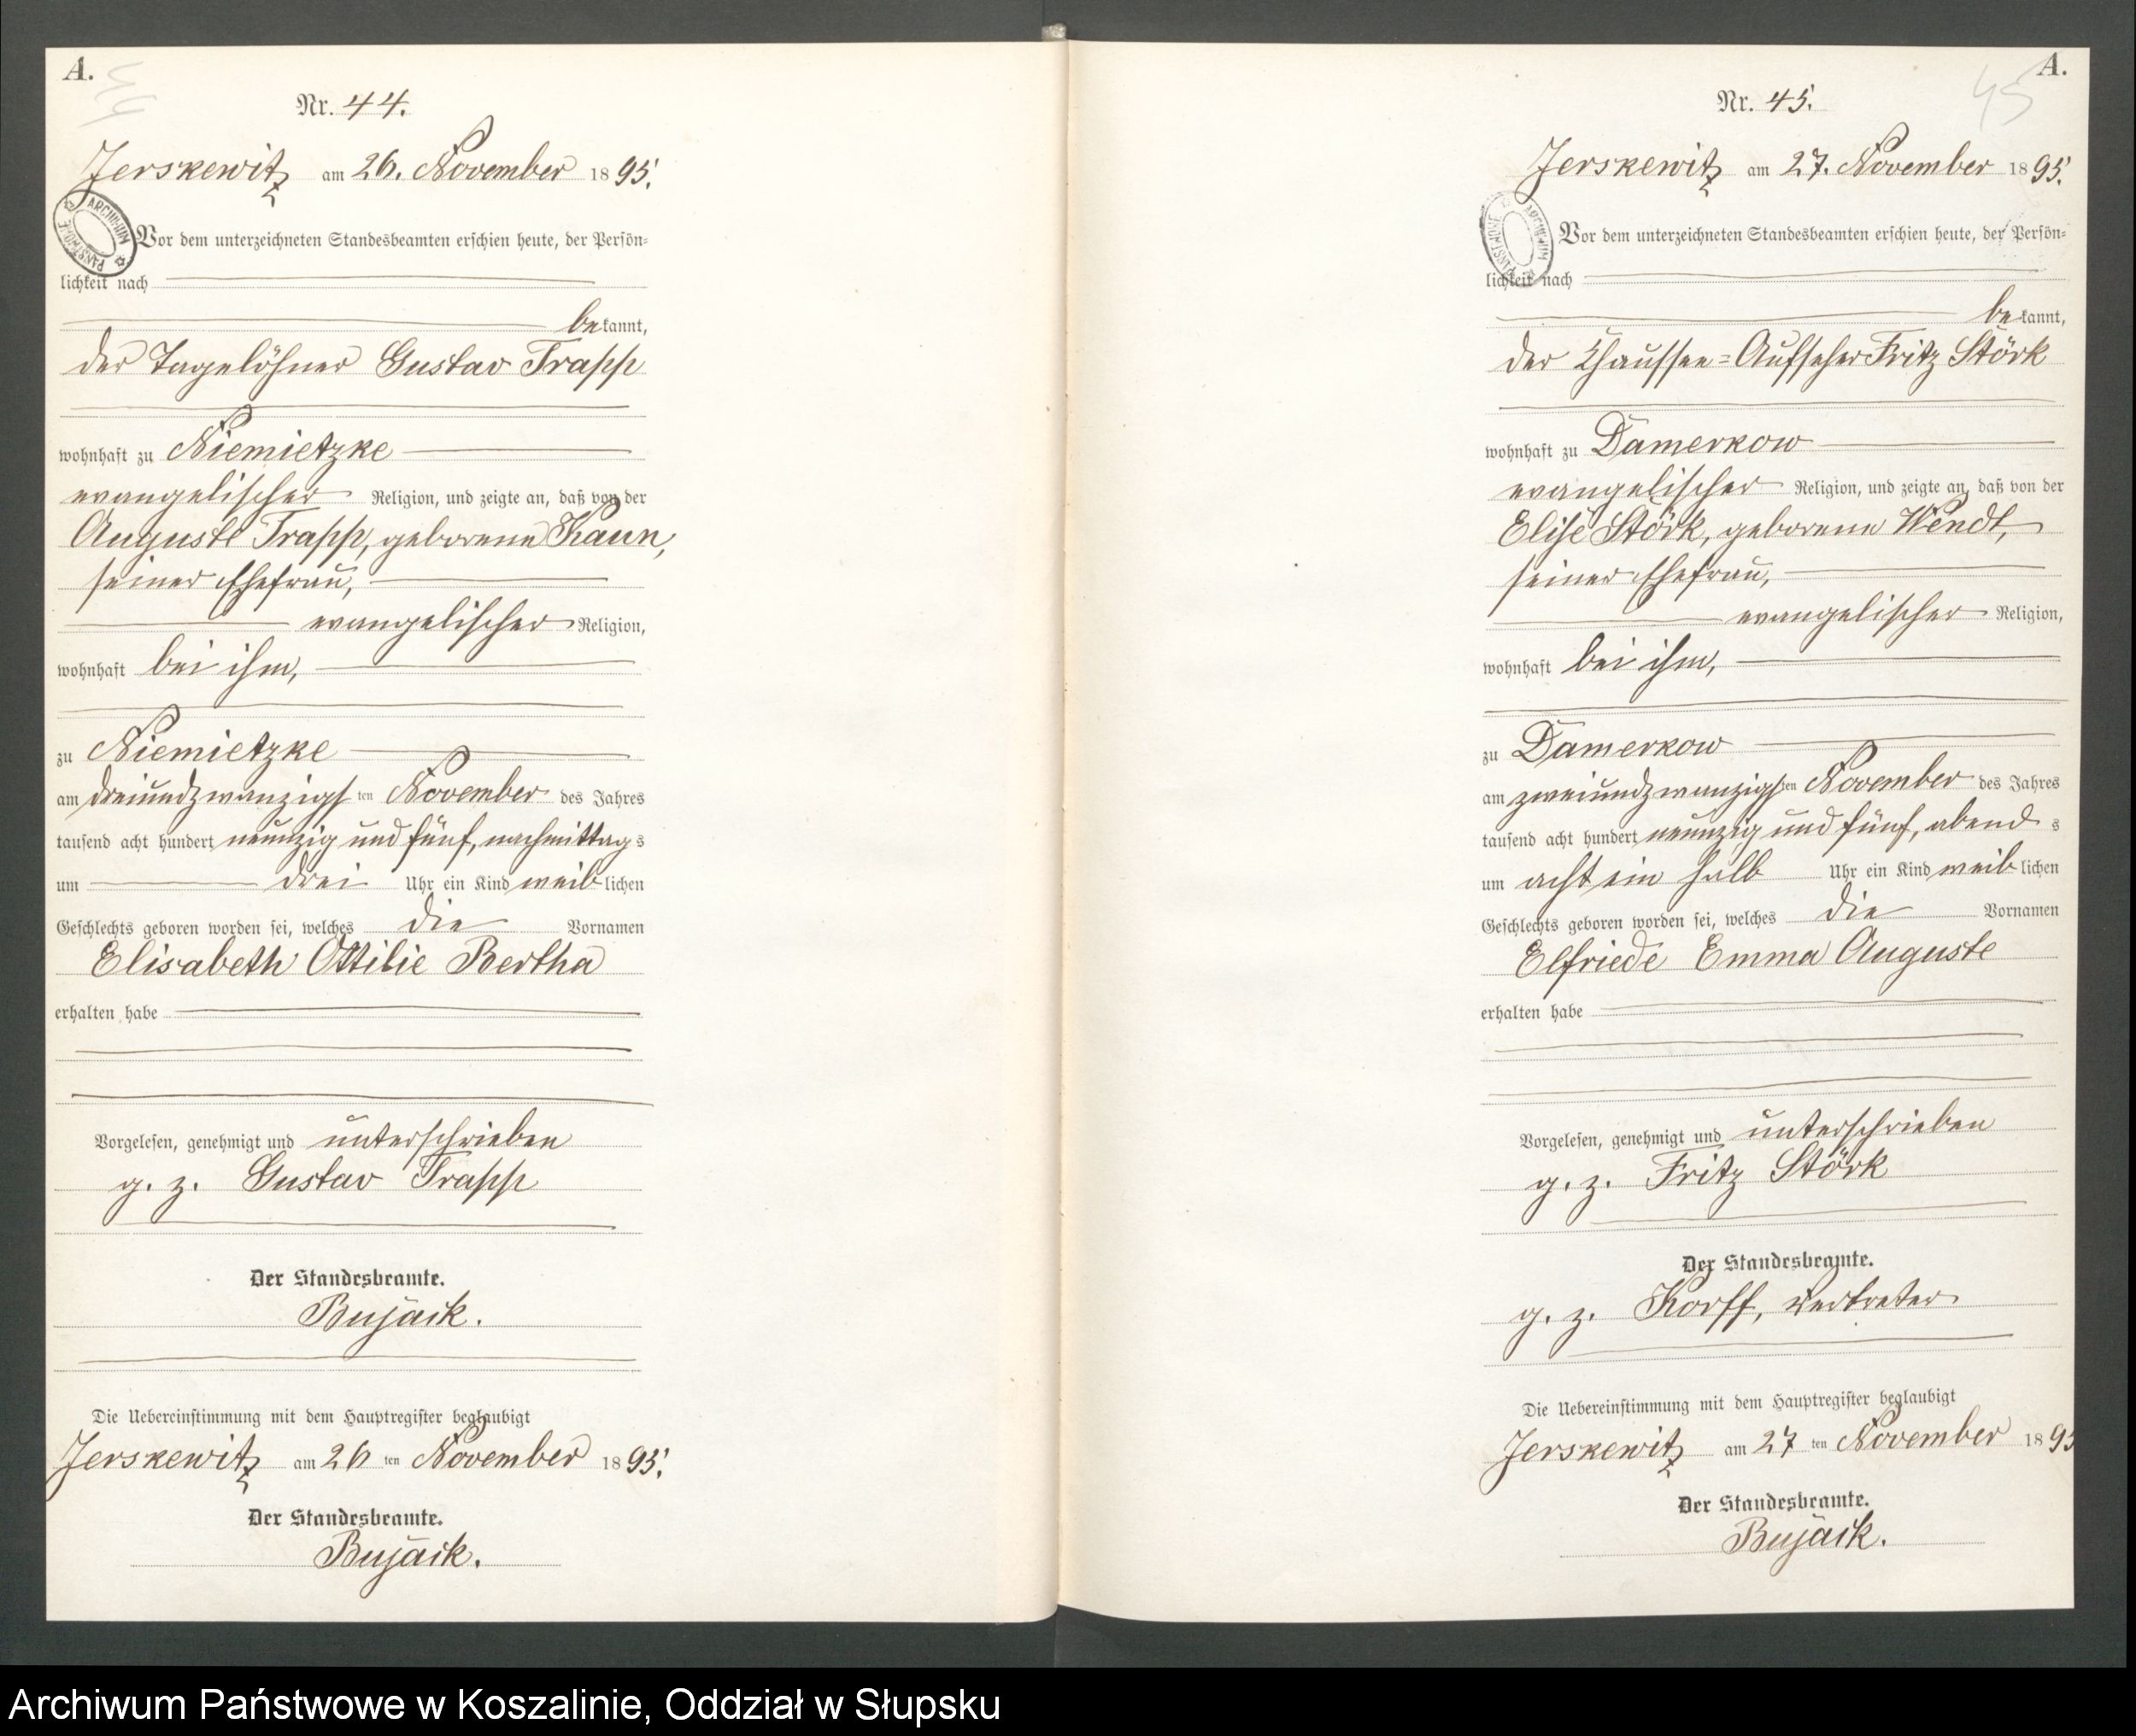 A.
44
Nr. 44.
Jerskewitz am 26. November 1895.
ARCHIWUM PAŃSTWOWE
Vor dem unterzeichneten Standesbeamten erschien heute, der Persön=
lichkeit nach
bekannt,
der Tagelöhner Gustav Trapp
wohnhaft zu Niemietzke
evangelischer Religion, und zeigte an, daß von der
Auguste Trapp, geborene Kaun,
seiner Ehefrau,
evangelischer Religion,
wohnhaft bei ihm,
zu Niemietzke
am dreiundzwanzigsten November des Jahres
tausend acht hundert neunzig und fünf, nachmittags
um drei Uhr ein Kind weiblichen
Geschlechts geboren worden sei, welches die Vornamen
Elisabeth Ottilie Bertha
erhalten habe
Vorgelesen, genehmigt und unterschrieben
g. z. Gustav Trapp
Der Standesbeamte.
Bujack.
Die Uebereinstimmung mit dem Hauptregister beglaubigt
Jerskewitz am 26ten November 1895.
Der Standesbeamte.
Bujack.
A.
45
Nr. 45.
Jerskewitz am 27. November 1895.
ARCHIWUM PAŃSTWOWE
Vor dem unterzeichneten Standesbeamten erschien heute, der Persön=
lichkeit nach
bekannt,
der Chaussee=Aufseher Fritz Störk
wohnhaft zu Damerkow
evangelischer Religion, und zeigte an, daß von der
Elise Störk, geborene Wendt,
seiner Ehefrau,
evangelischer Religion,
wohnhaft bei ihm,
zu Damerkow
am zweiundzwanzigsten November des Jahres
tausend acht hundert neunzig und fünf, abends
um acht ein halb Uhr ein Kind weiblichen
Geschlechts geboren worden sei, welches die Vornamen
Elfriede Emma Auguste
erhalten habe
Vorgelesen, genehmigt und unterschrieben
g. z. Fritz Störk
Der Standesbeamte.
g. z. Korff, Vertreter
Die Uebereinstimmung mit dem Hauptregister beglaubigt
Jerskewitz am 27ten November 1895
Der Standesbeamte.
Bujack.
Archiwum Państwowe w Koszalinie, Oddział w Słupsku